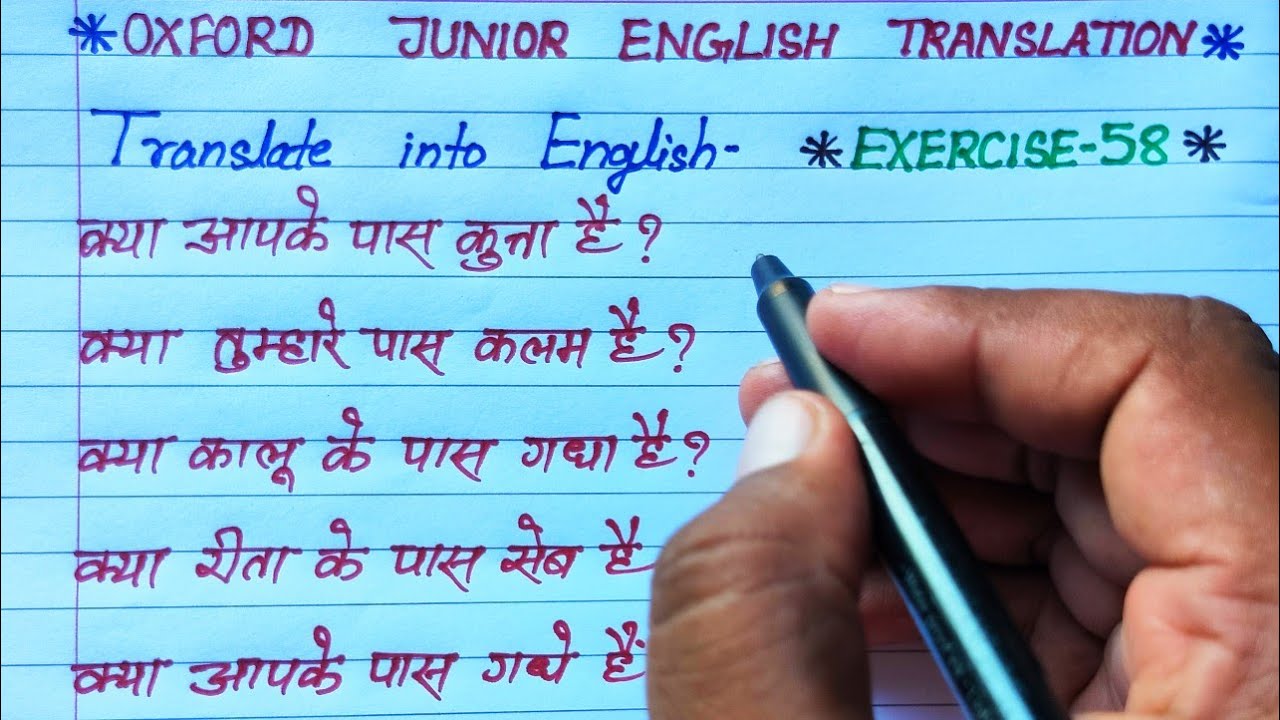 *OXFORD JUNIOR ENGLISH TRANSLATION*
Translate into English- *EXERCISE-58*
क्या आपके पास कुत्ता है?
क्या तुम्हारे पास कलम है?
क्या कालू के पास गधा है?
क्या रीता के पास सेब है
क्या आपके पास गधे हैं